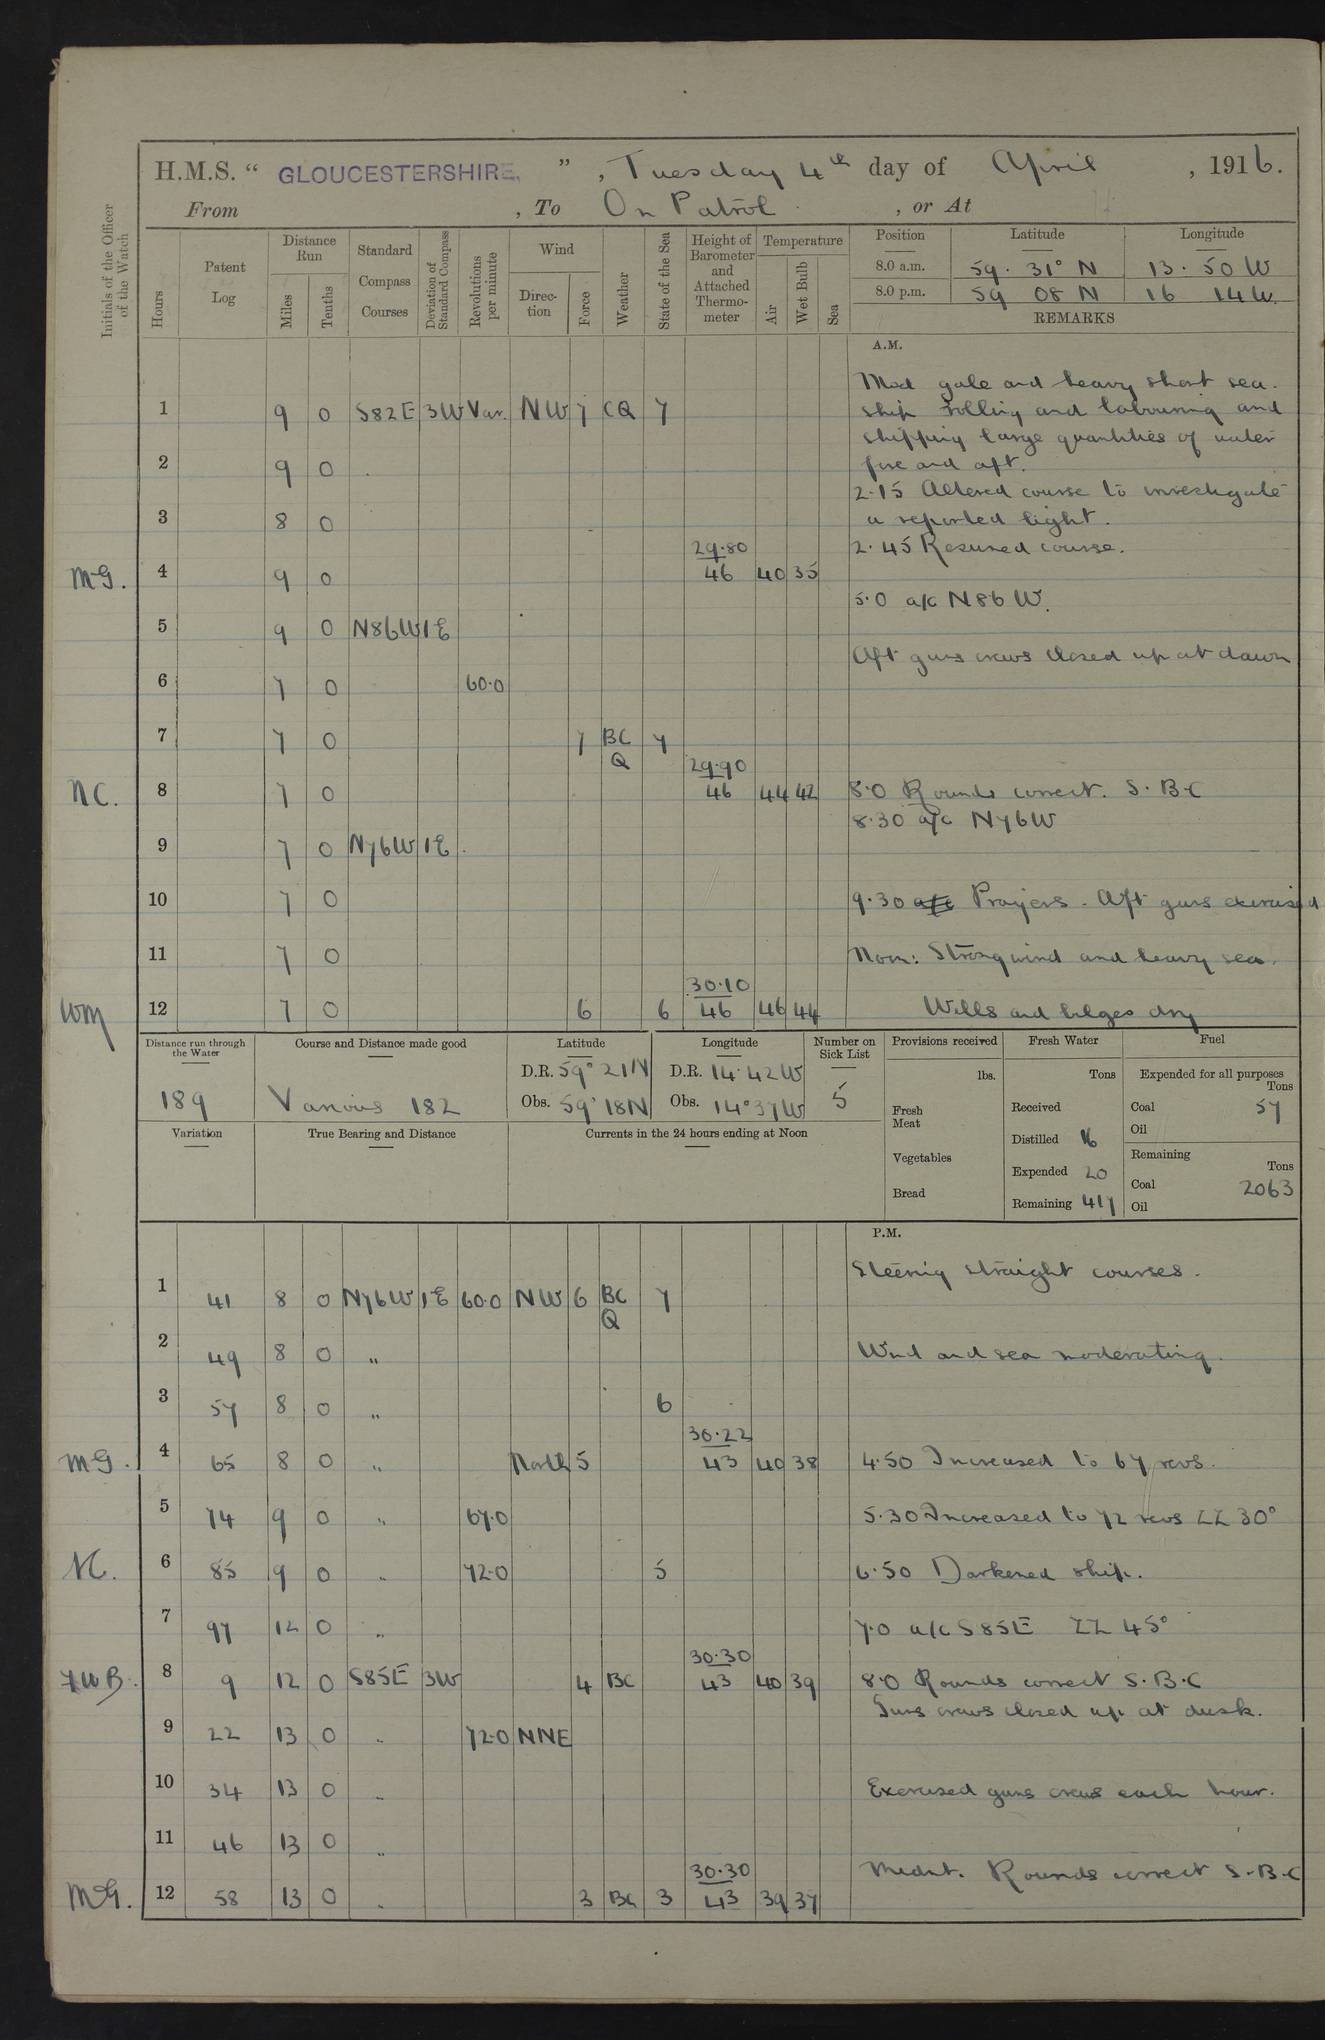 H.M.S. “ GLOUCESTERSHIRE. ”, Tuesday 4th day of April, 1916.
From , To On Patrol , or At
Initials of the Officer of the Watch
Hours
Patent Log
Distance Run
Miles
Tenths
Standard Compass Courses
Deviation of Standard Compass
Revolutions per minute
Wind
Direction
Force
Weather
State of the Sea
Height of Barometer and Attached Thermometer
Temperature
Air
Wet Bulb
Sea
Position Latitude Longitude
8.0 a.m. 59. 31° N 13. 50 W
8.0 p.m. 59 08 N 16 14 W.
REMARKS
A.M.
Mod gale and heavy short sea.
1 9 0 S82E 3W Var. NW 7 CQ 7 ship rolling and labouring and
shipping large quantities of water
2 9 0 fore and aft.
2.15 Altered course to investigate
3 8 0 a reported light.
29.80 2.45 Resumed course.
MG. 4 9 0 46 40 35
5.0 a/c N86W.
5 9 0 N86W 1E
Aft guns crews closed up at dawn
6 7 0 60.0
7 7 0 7 BC Q 7
29.90
NC. 8 7 0 46 44 42 8.0 Rounds correct. S.B.C
8.30 a/c N76W
9 7 0 N76W 1E
10 7 0 9.30 a/c Prayers - Aft guns exercised
11 7 0 Noon: Strong wind and heavy sea.
30.10
WM 12 7 0 6 6 46 46 44 Wells and bilges dry
Distance run through the Water
189
Course and Distance made good
Various 182
Latitude
D.R. 59° 21N
Obs. 59° 18N
Longitude
D.R. 14.42W
Obs. 14°37W
Number on Sick List
5
Provisions received
lbs.
Fresh Meat
Vegetables
Bread
Fresh Water
Tons
Received
Distilled 16
Expended 20
Remaining 417
Fuel
Expended for all purposes
Tons
Coal 57
Oil
Remaining
Tons
Coal 2063
Oil
Variation
True Bearing and Distance
Currents in the 24 hours ending at Noon
P.M.
Steering straight courses.
1 41 8 0 N76W 1E 60.0 NW 6 BC Q 7
2 49 8 0 „ Wind and sea moderating.
3 57 8 0 „ 6
30.22
MG. 4 65 8 0 „ North 5 43 40 38 4.50 Increased to 67 revs.
5 74 9 0 „ 67.0 5.30 Increased to 72 revs ZZ 30°
NC. 6 85 9 0 „ 72.0 5 6.50 Darkened ship.
7 97 12 0 „ 7.0 a/c S85E ZZ 45°
30.30
FWB. 8 9 12 0 S85E 3W 4 BC 43 40 39 8.0 Rounds correct S.B.C
Guns crews closed up at dusk.
9 22 13 0 „ 72.0 NNE
10 34 13 0 „ Exercised guns crews each hour.
11 46 13 0 „
30.30 Midnt. Rounds correct S.B.C
MG. 12 58 13 0 „ 3 BC 3 43 39 37